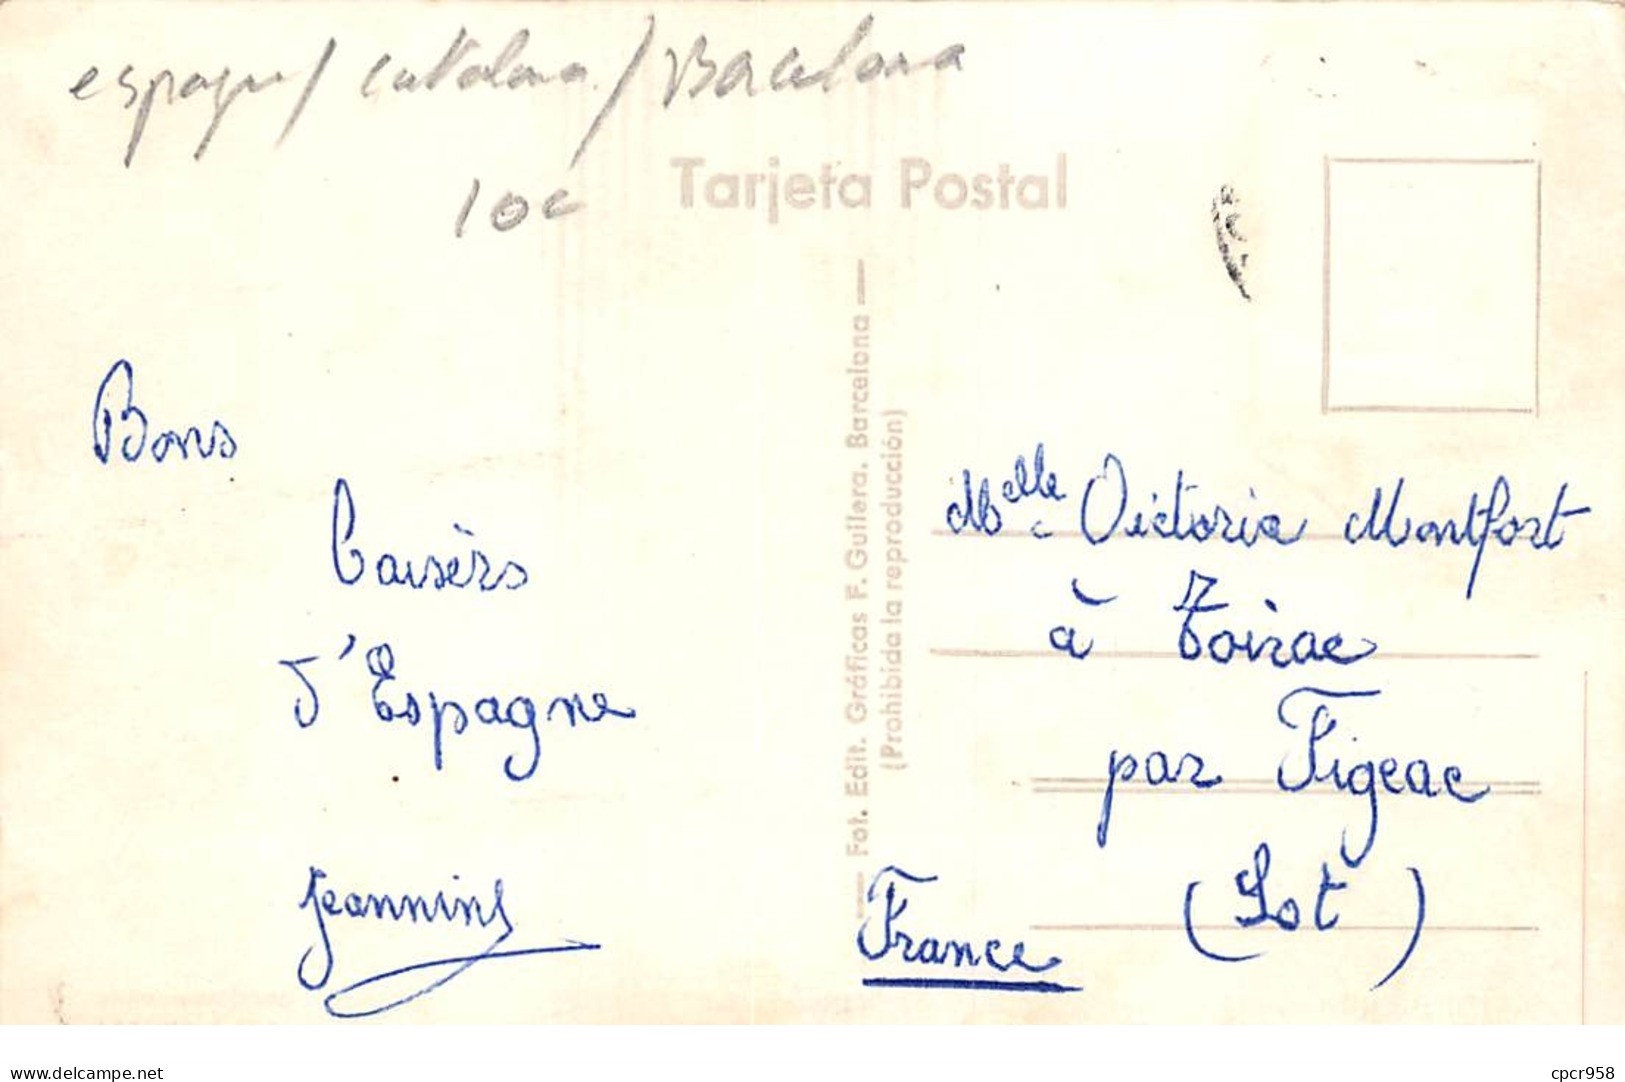 espagne/Catalona/Barcelona
10c
Tarjeta Postal
Bons
Baisèrs
d'Espagne
Jeannine
Fot. Edit. Gráficas F. Guilera. Barcelona
(Prohibida la reproducción)
Melle Victoria Montfort
à Toirac
par Figeac
(Lot)
France
delcampe.net
cpcr958